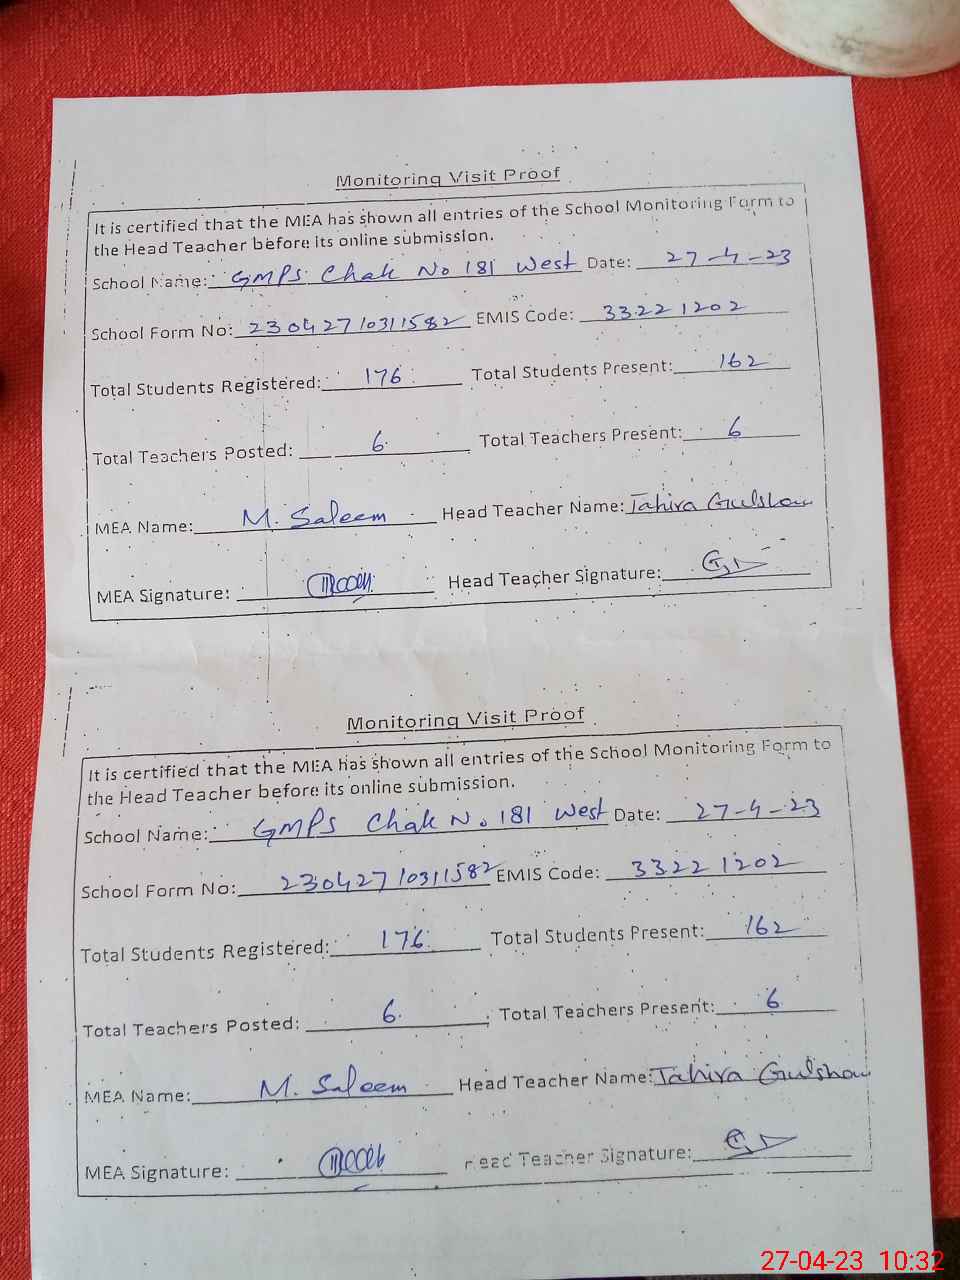 Monitoring Visit Proof
It is certified that the MEA has shown all entries of the School Monitoring Form to
the Head Teacher before its online submission.
School Name: GMPS Chak No 181 West Date: 27-4-23
School Form No: 23042710311582 EMIS Code: 33221202
Total Students Registered: 176 Total Students Present: 162
Total Teachers Posted: 6 Total Teachers Present: 6
MEA Name: M. Saleem Head Teacher Name: Tahira Gulshan
MEA Signature: Head Teacher Signature:
Monitoring Visit Proof
It is certified that the MEA has shown all entries of the School Monitoring Form to
the Head Teacher before its online submission.
School Name: GMPS Chak No. 181 West Date: 27-4-23
School Form No: 23042710311582 EMIS Code: 33221202
Total Students Registered: 176 Total Students Present: 162
Total Teachers Posted: 6 Total Teachers Present: 6
MEA Name: M. Saleem Head Teacher Name: Tahira Gulshan
MEA Signature: Head Teacher Signature:
27-04-23 10:32